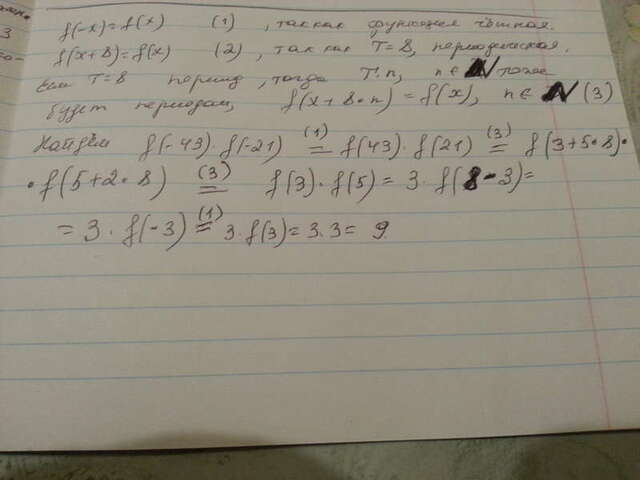 3
f(-x)=f(x) (1) , так как функция чётная.
f(x+8)=f(x) (2) , так как T=8, периодическая.
Если T=8 период, тогда T·n, n∈N тоже
будет периодом, f(x+8·n)=f(x), n∈N (3)
Найдём f(-43)·f(-21) (1)= f(43)·f(21) (3)= f(3+5·8)·
·f(5+2·8) (3)= f(3)·f(5)=3·f(8-3)=
=3·f(-3) (1)= 3·f(3)=3·3=9.